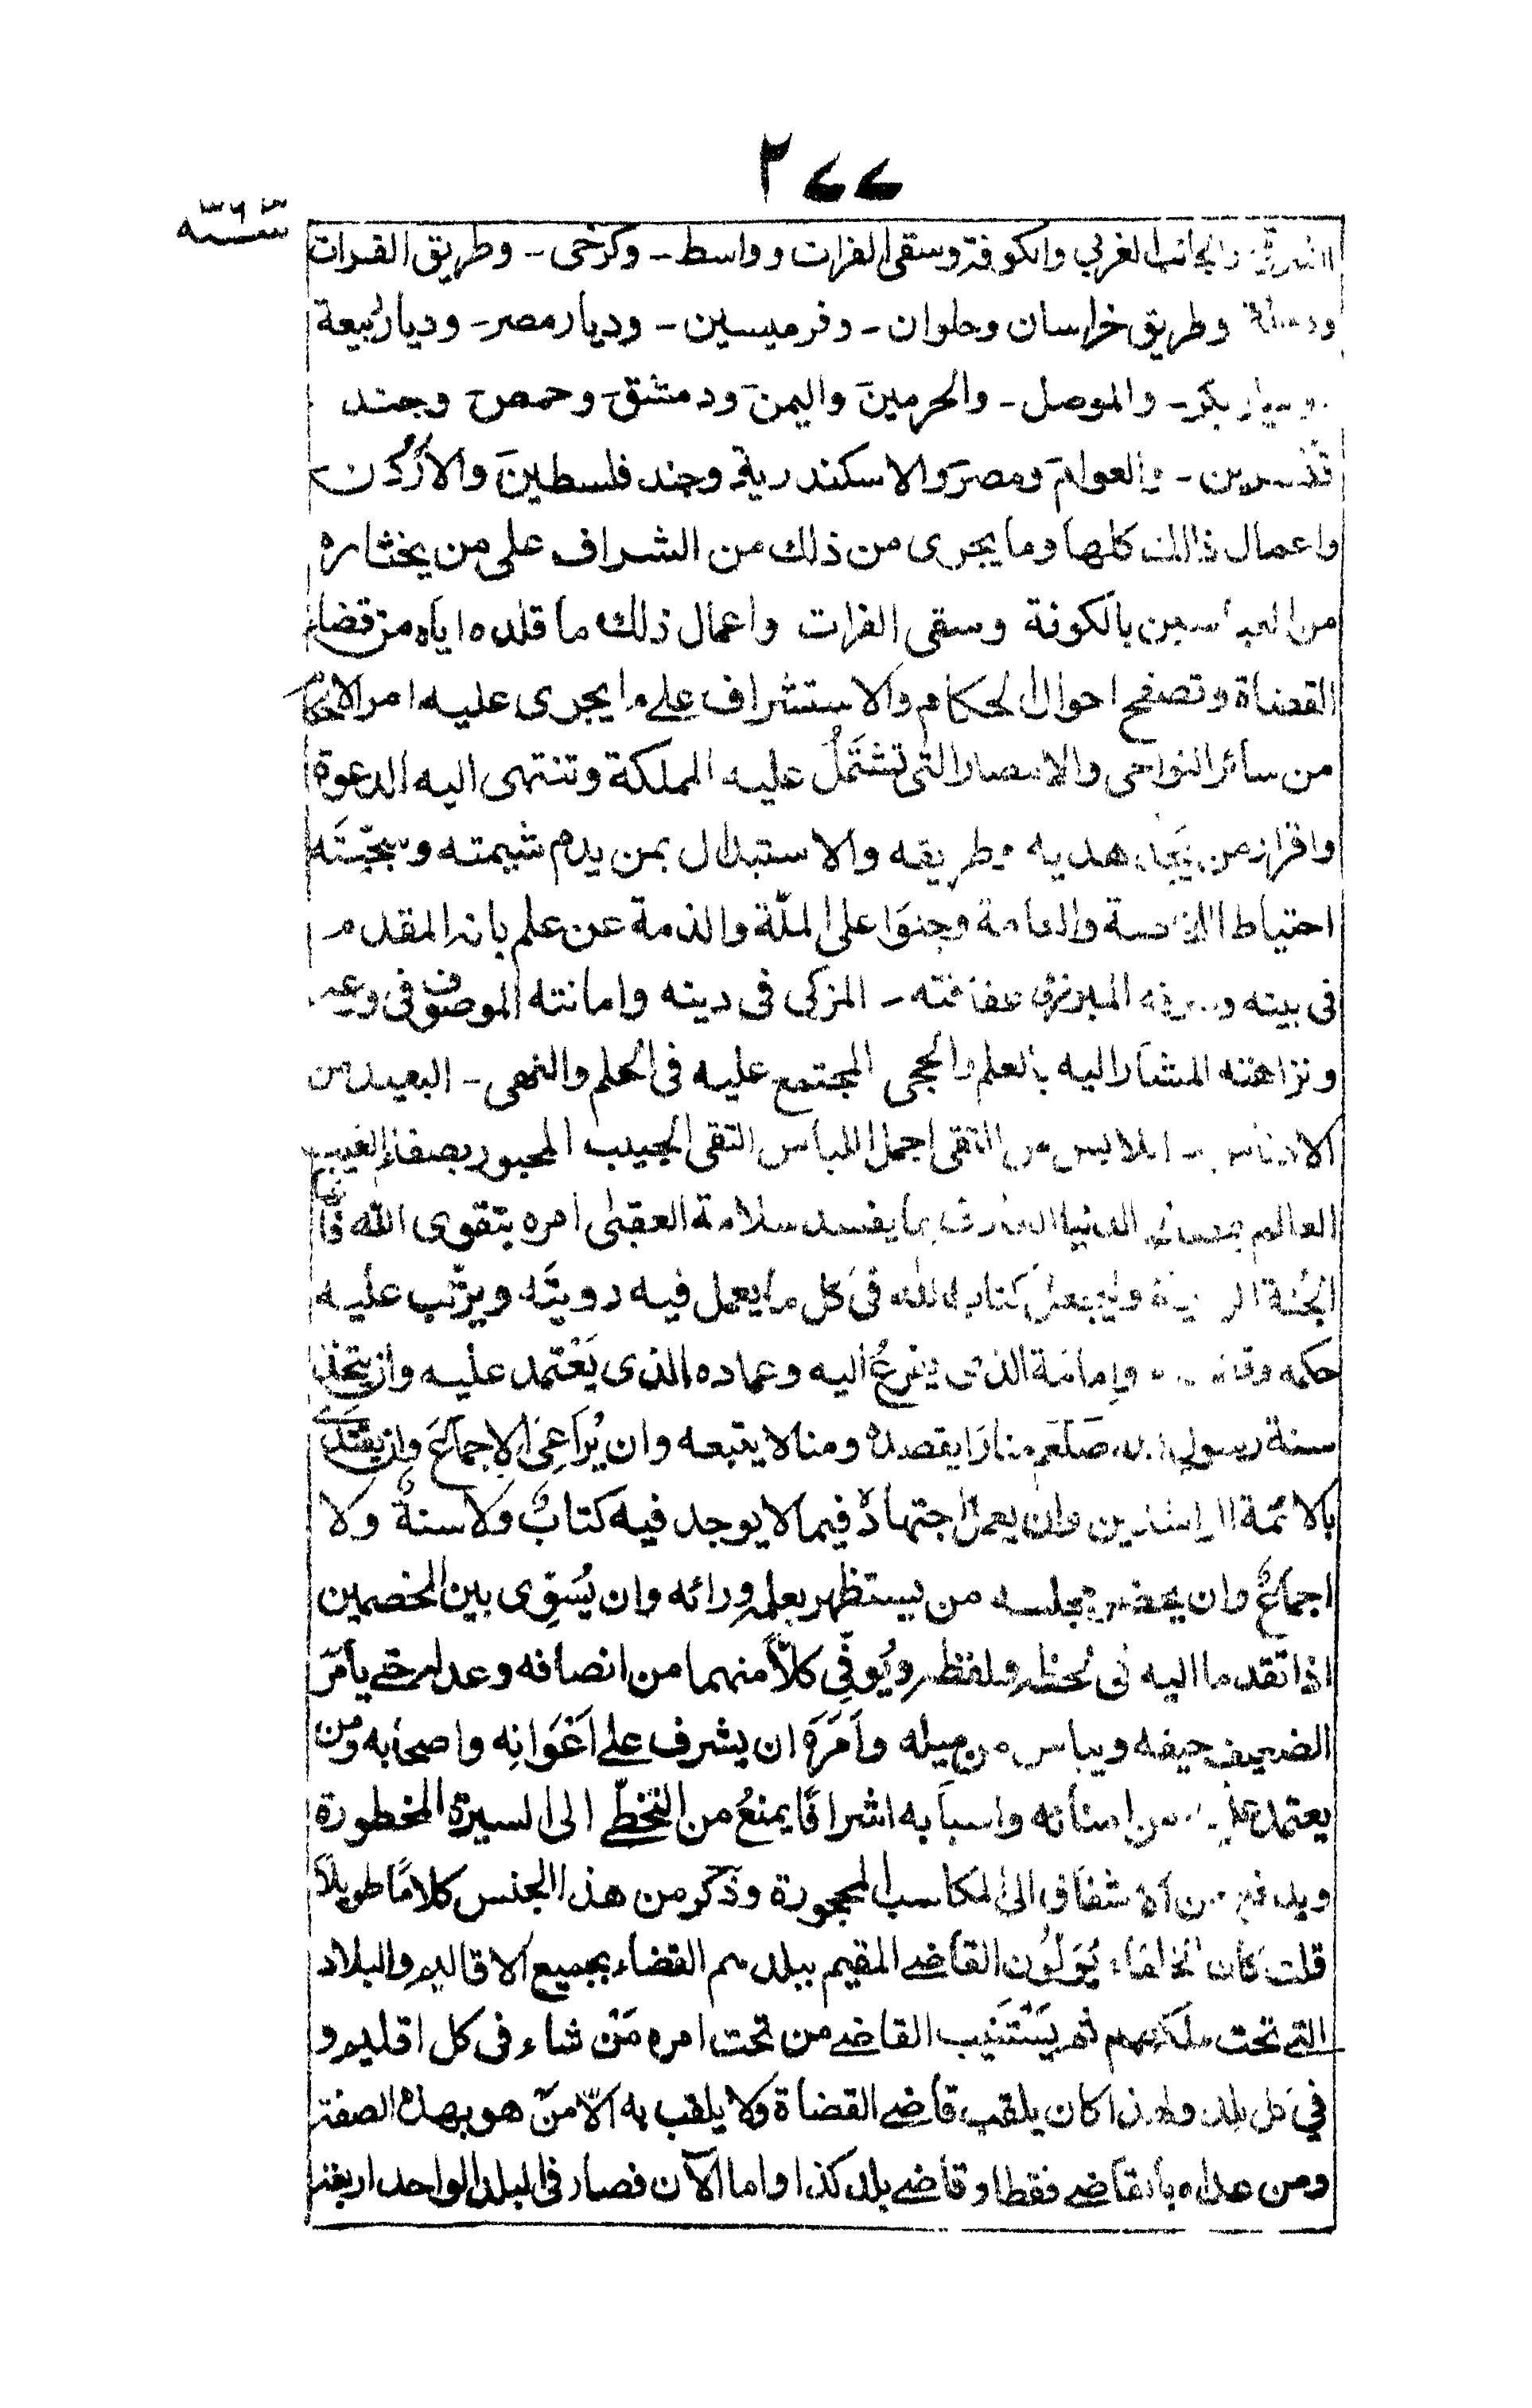 ٢٧٧
سنة ٣٦٣
الشرقي والجانب الغربي والكوفة وسقى الفرات وواسط - وكرخى - وطريق الفرات
ودجلة وطريق خراسان وحلوان - وقرميسين - وديار مصر - وديار ربيعة
وديار بكر - والموصل - والحرمين واليمن ودمشق وحمص وجند
قنسرين - والعواصم ومصر والاسكندرية وجند فلسطين والأردن
واعمال ذالك كلها وما يجرى من ذلك من الشراف على من يختاره
من العباسين بالكوفة وسقى الفرات واعمال ذلك ما قلده اياه من قضاء
القضاة وتصفح احوال الحكام والاستشراف على ما يجرى عليه امر الاحكام
من سائر النواحى والامصار التى تشتمل عليه المملكة وتنتهى اليه الدعوة
واقرار من يحمد هديه وطريقه والاستبدال بمن يدم شيمته وسجيته
احتياطا للخاصة والعامة وجنوا على الملة والذمة عن علم بانه المقدم
فى بيته وشرفه المبرز فى عفافته - المزكى فى دينه وامانته الموصوف فى ورعه
ونزاهته المشار اليه بالعلم والحجى المجتمع عليه فى الحلم والنهى - البعيد من
الادناس - اللابس من التقى اجمل اللباس التقى الجيب المحبور بصفاء الغيب
العالم بمصالح الدنيا العارف بما يفسد سلامة العقبى امره بتقوى الله فانها
الجنة الواقية وليجعل كتاب الله فى كل ما يعمل فيه رويته ويرتب عليه
حكمه وقضيته وإمامة الذى يفزع اليه وعماده الذى يعتمد عليه وان يتخذ
سنة رسول الله صلعم منارا يقصده ومثالا يتبعه وان يُراعى الإجماع وان يقتدى
بالائمة الراشدين وان يعمل اجتهاده فيما لا يوجد فيه كتاب ولا سنة ولا
اجماع وان يحضر مجلسه من يستظهر بعلمه ورائه وان يُسَوِى بين الخصمين
اذا تقدما اليه فى لحظه ولفظه ويُوفِّى كلاً منهما من انصافه وعدله حتى يأمن
الضعيف حيفه وييأس من ميله وأمره ان يشرف على اعوانه واصحابه ومن
يعتمد عليه من امنائه واسبابه اشرافًا يمنع من التخطى الى السيرة المخطورة
ويدفع عن الاشفاق الى المكاسب المحجورة وذكر من هذا الجنس كلامًا طويلًا
قلت كان الخلفاء يُوَلُّون القاضى المقيم ببلدهم القضاء بجميع الاقاليم والبلاد
التى تحت ملكهم ثم يَسْتَنيب القاضى من تحت امره مَنْ شاء فى كل اقليم و
في كل بلد ولهذا كان يلقب قاضى القضاة ولا يلقب به الّا من هو بهذه الصفة
ومن عداه بالقاضى فقط او قاضى بلد كذا واما الآن فصار فى البلد الواحد اربعة